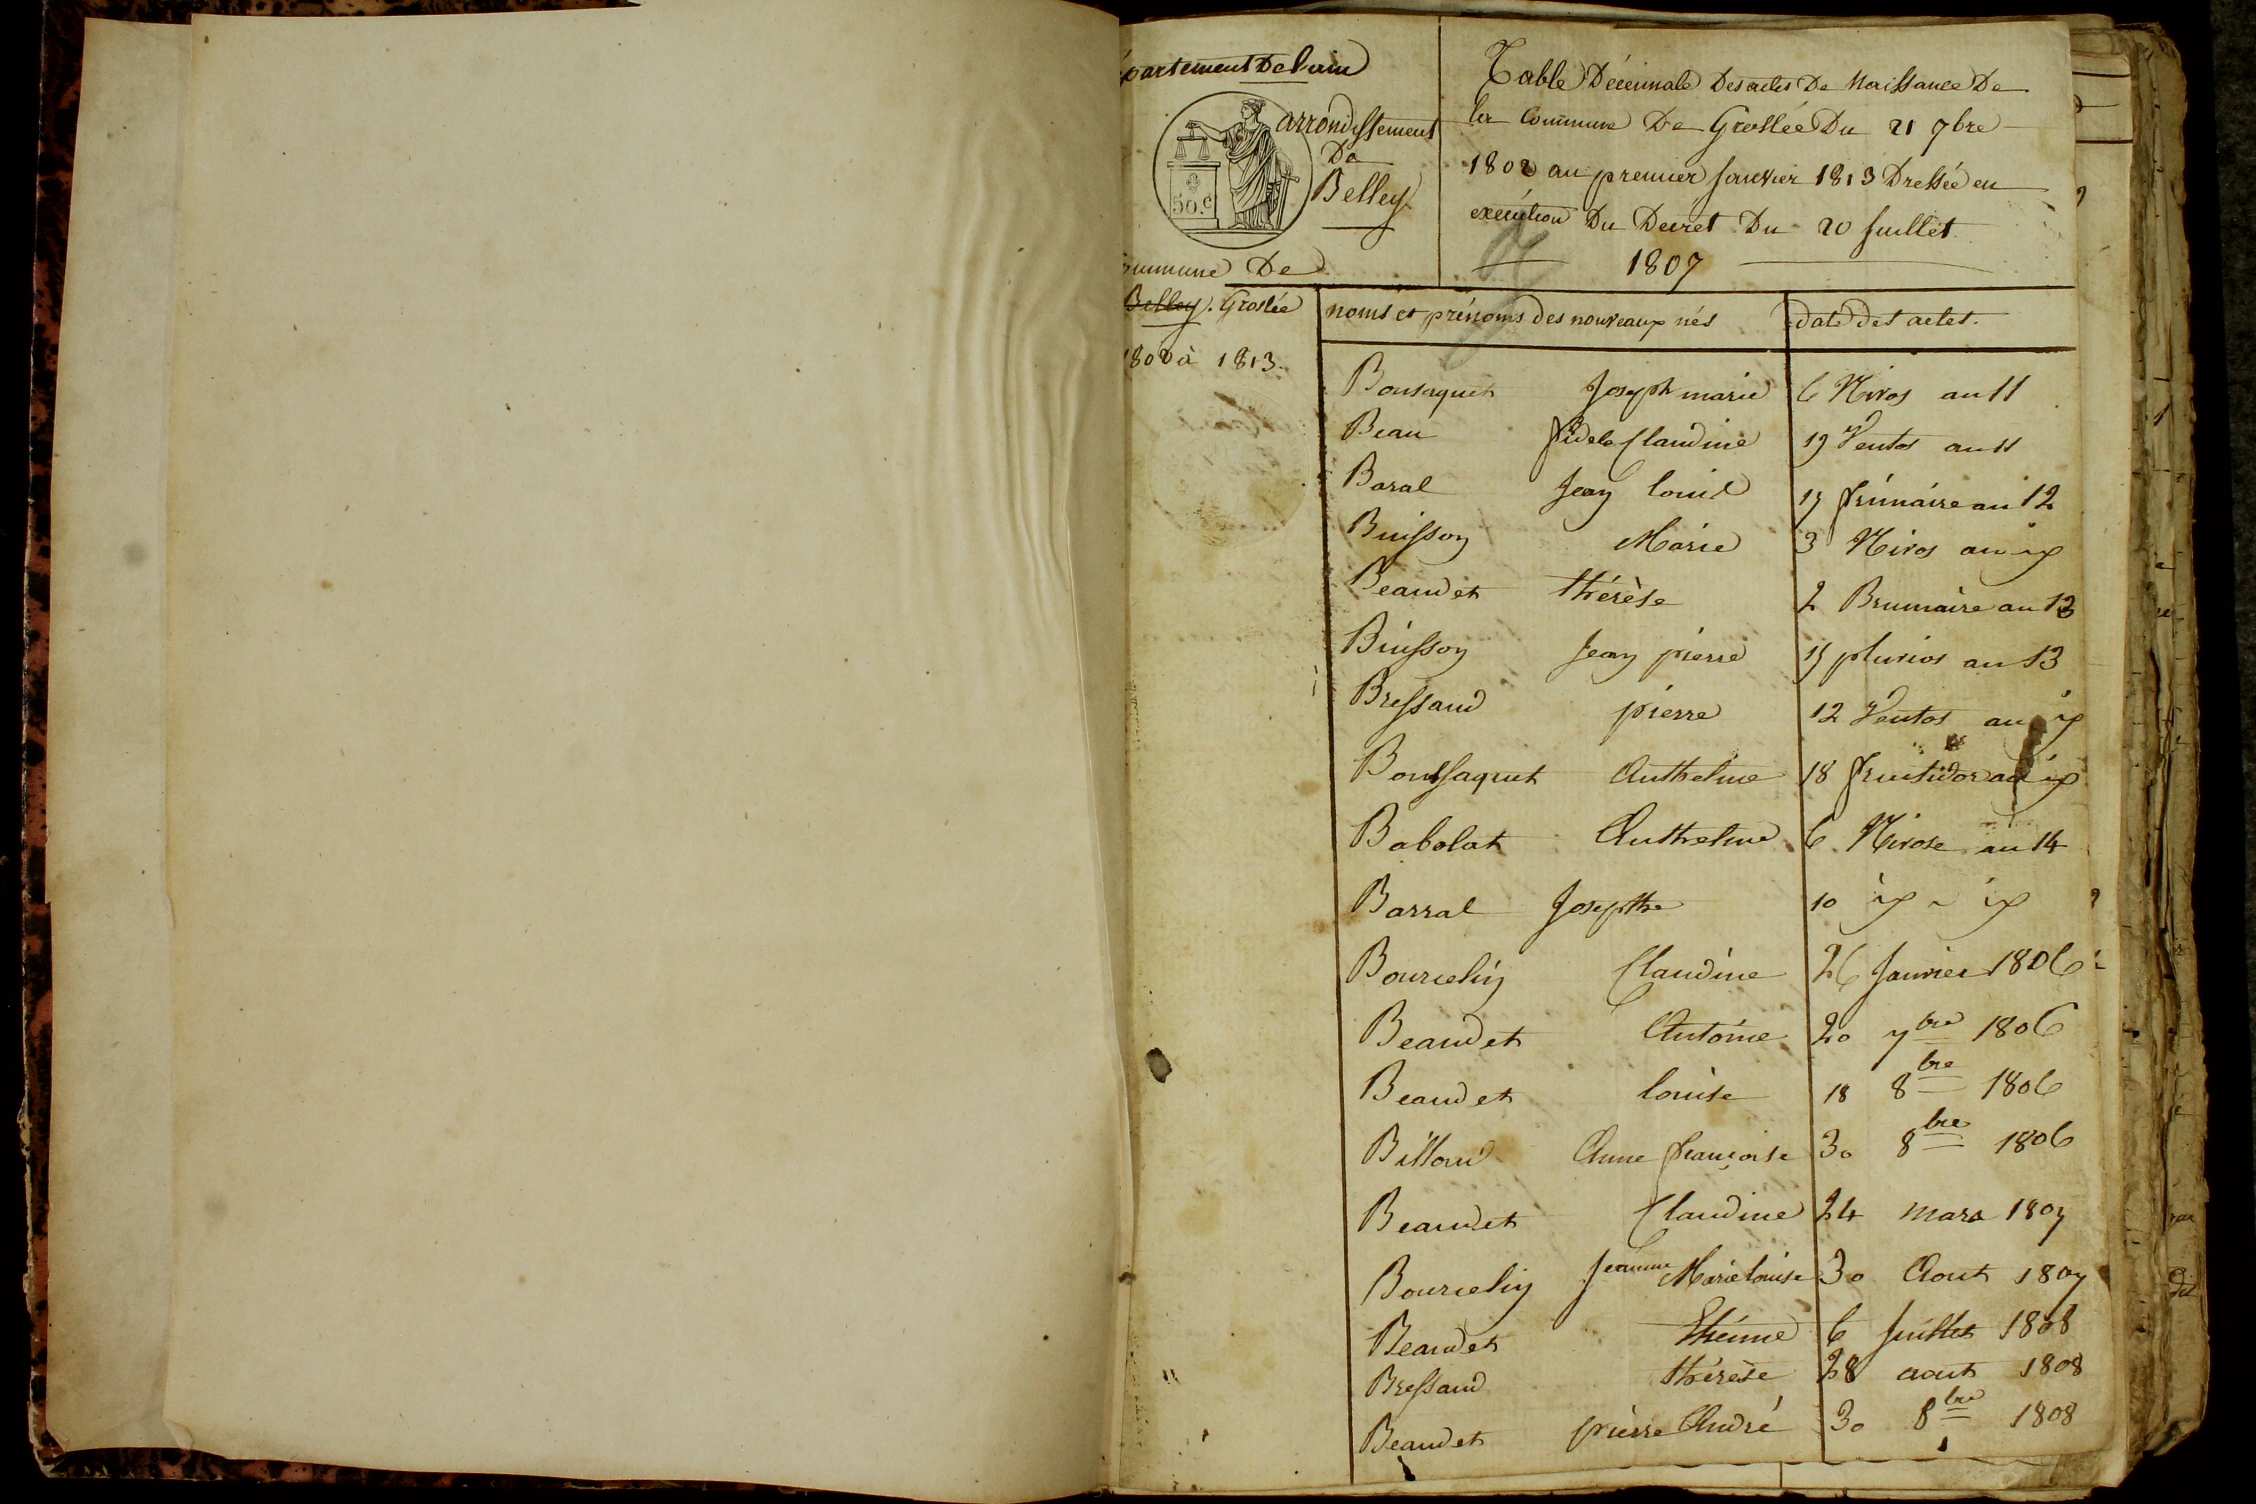 département De l'ain
arrondissement
De
Belley.
50.c
commune De
Belley. Groslée
1802 à 1813.
Table Décennale Des actes De Naissance De
la Commune De Groslée Du 21 7bre
1802 au premier Janvier 1813 Dressée en
exécution Du Decret Du 20 Juillet
1807
noms et prénoms des nouveaux nés date des actes.
Bousaquet Joseph marie 6 Nivos an 11
Beau fidele Claudine 19 Ventos an 11
Baral Jean louis 15 frimaire an 12
Buisson Marie 3 Nivos an id
Beaudet thérèse 2 Brumaire an 13
Buisson Jean pierre 15 pluvios an 13
Bressaud pierre 12 Ventos an id
Boussaquet Anthelme 18 fructidor an id
Babolat Anthelme 6 Nivose an 14
Barral Josepthe 10 id id
Bourcelin Claudine 26 Janvier 1806
Beaudet Antoine 20 7bre 1806
Beaudet louise 18 8bre 1806
Billoud Anne françoise 30 8bre 1806
Beaudet Claudine 24 mars 1807
Bourcelin Jeanne Marie louise 30 Aout 1807
Beaudet Ethienne 6 Juillet 1808
Bressaud thérèse 28 aout 1808
Beaudet pierre André 30 8bre 1808